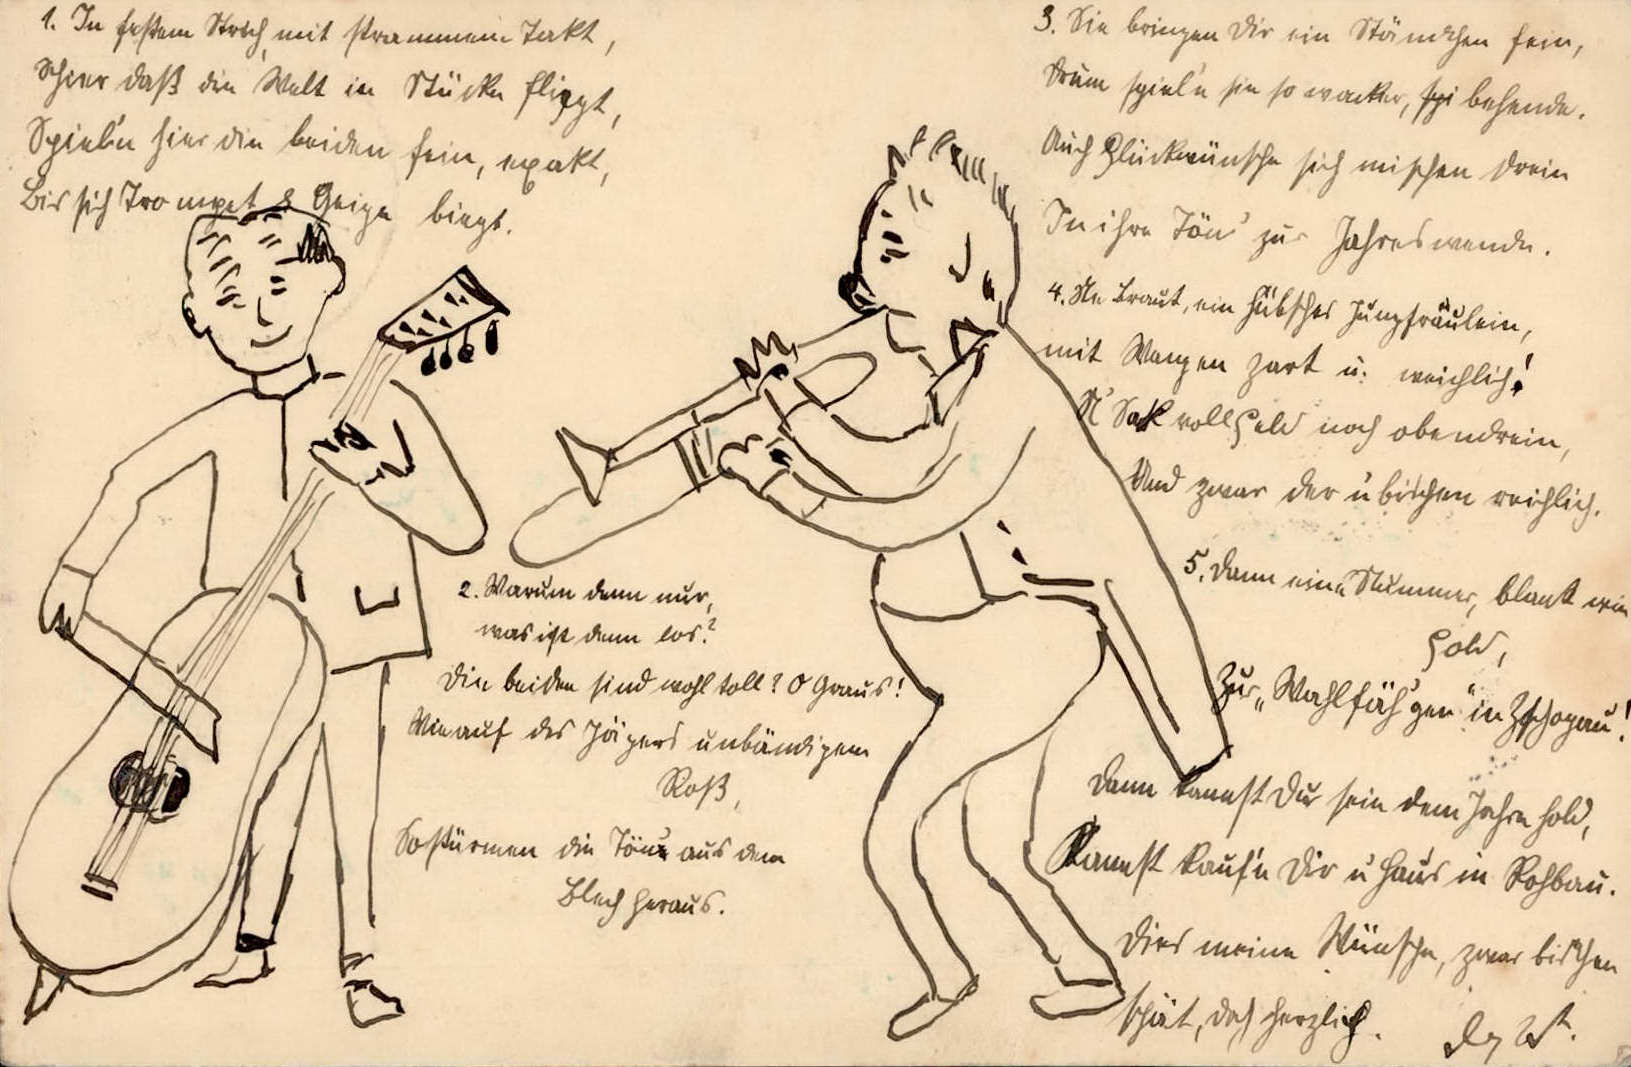 1. In festem Strich, mit strammem Takt,
Schier daß die Welt in Stücke fliegt,
Spiel'n hier die beiden fein, exakt,
Bis sich Trompet & Geige biegt.
2. Warum denn nur,
was ist denn los?
Die beiden sind wohl toll? O Graus!
Wie auf des Jägers unbändigem
Roß,
So stürmen die Töne aus dem
Blech heraus.
3. Sie bringen Dir ein Ständchen fein,
Drum spiel'n sie so wacker, behende.
Auch Glückwünsche sich mischen drein
In ihre Tön' zur Jahreswende.
4. Ne Braut, ein hübsches Jungfräulein,
mit Wangen zart u. weichlich!
N' Sack voll Geld noch obendrein,
Und zwar der bischen reichlich.
5. Dann eine Nummer, blank wie
Gold,
Zur „Wahlfäh'gen" in Zschopau!
Dann kannst Du sein dem Jahre hold,
Kannst kauf'n Dir Haus in Rohbau.
Dies meine Wünsche, zwar bischen
spät, doch herzlich.